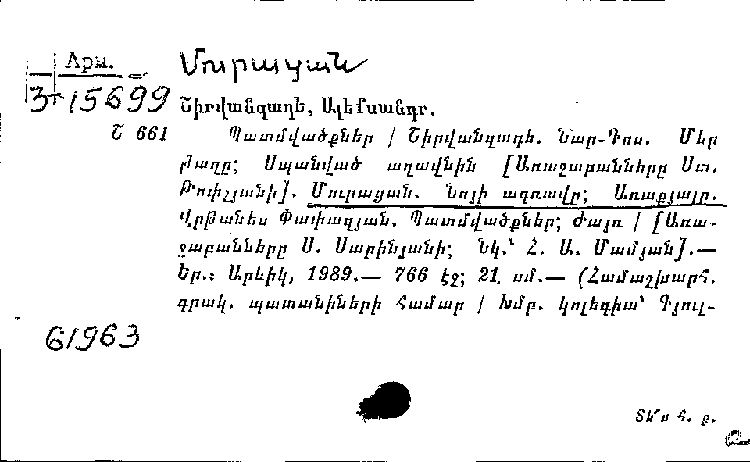 Арм. Մուրացան
3-15699 Շիրվանզադե, Ալեքսանդր.
Շ 661 Պատմվածքներ / Շիրվանզադե. Նար-Դոս. Մեր
թաղը; Սպանված աղավնին [Առաջաբանները Ստ.
Թոփչյանի]. Մուրացան. Նոյի ագռավը; Առաքյալը.
Վրթանես Փափազյան. Պատմվածքներ; Ժայռ / [Առա-
ջաբանները Ս. Սարինյանի; նկ.՝ Հ. Ա. Մամյան].—
Եր.: Արևիկ, 1989.— 766 էջ; 21 սմ.— (Համաշխարհ.
գրակ. պատանիների համար / Խմբ. կոլեգիա՝ Գյուլ-
61963
Տե՛ս հ. ք.